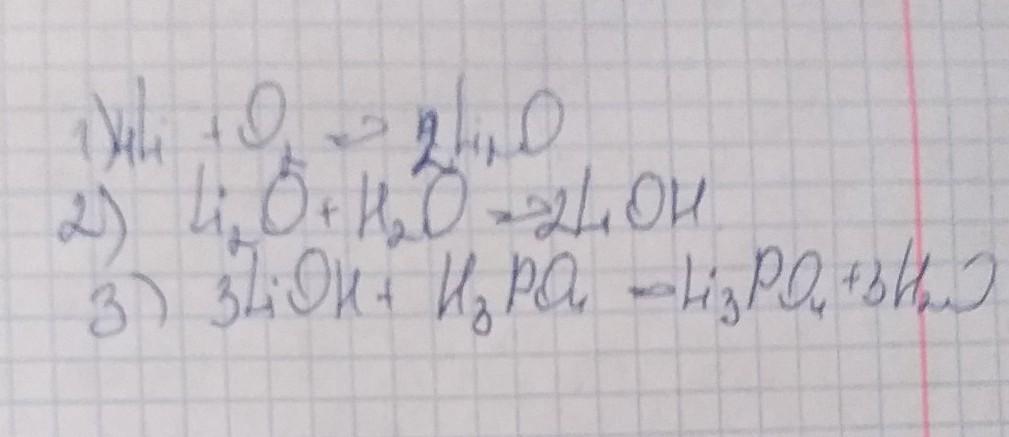 1) 4Li + O₂ → 2Li₂O
2) Li₂O + H₂O → 2LiOH
3) 3LiOH + H₃PO₄ → Li₃PO₄ + 3H₂O